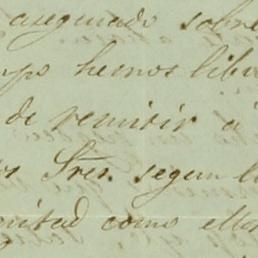 asegurado sobre
hemos libr
de remitir á
Sres. segun l
como ellos